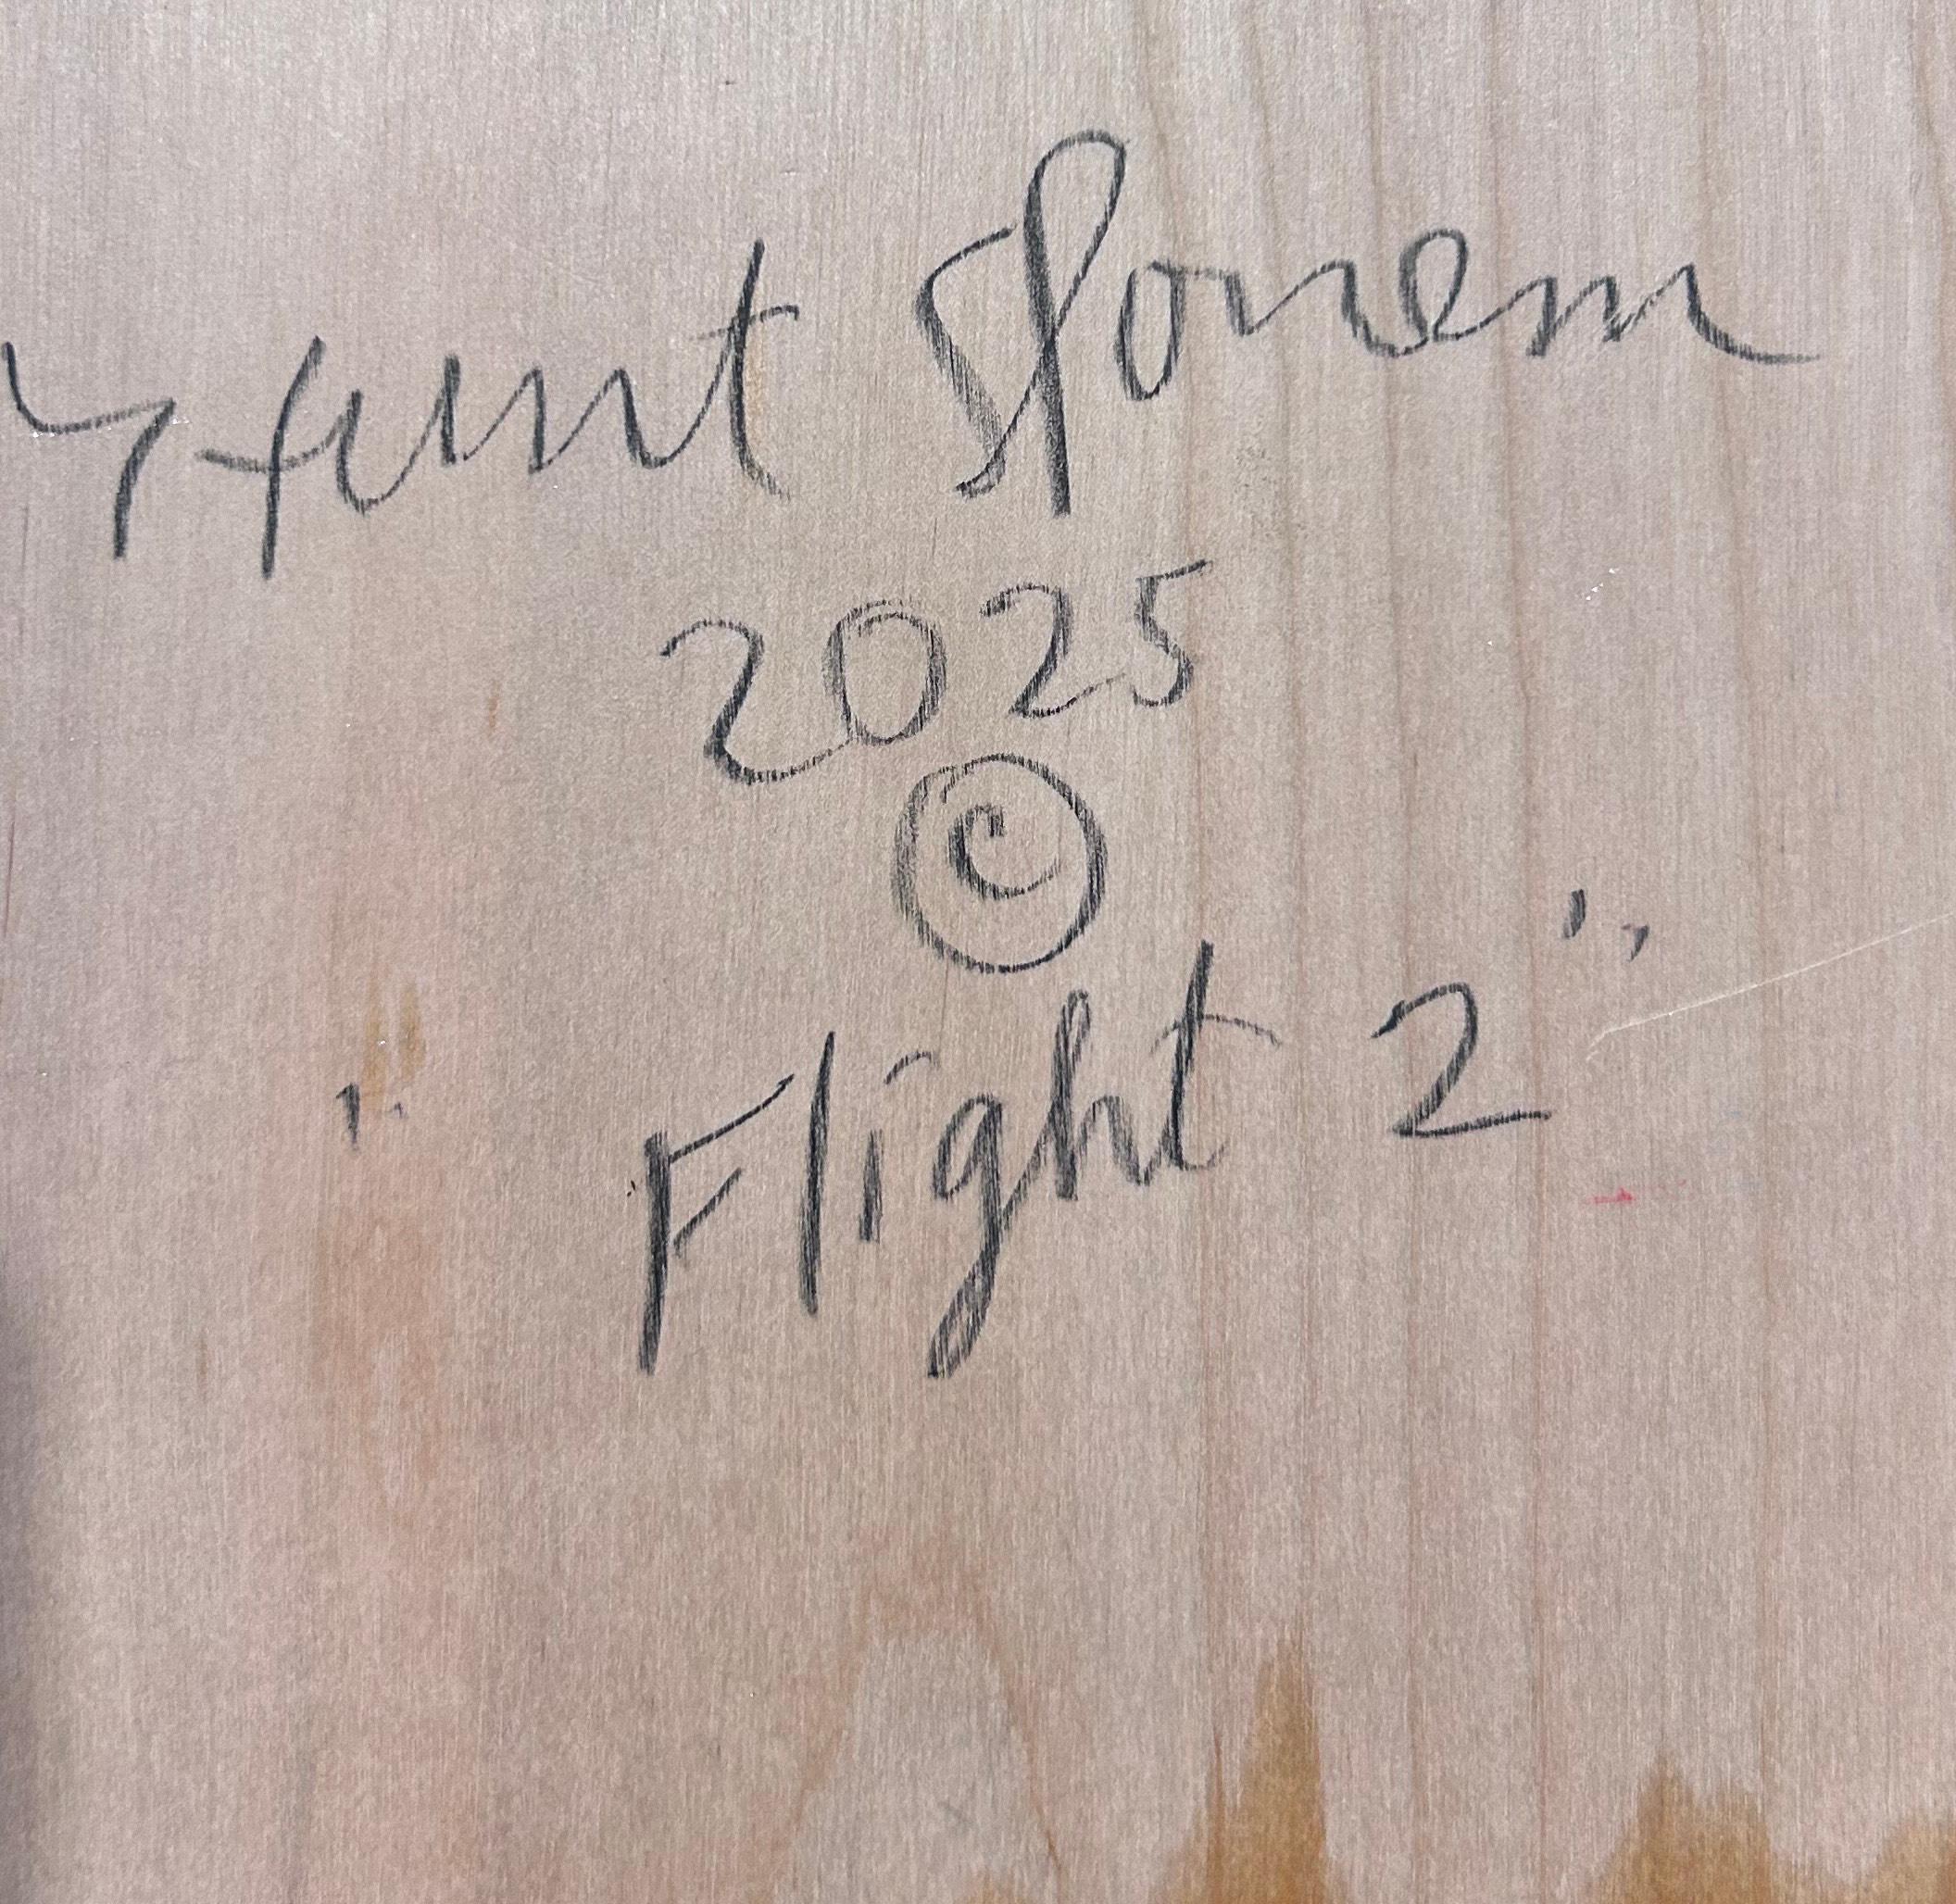 Hunt Slonem
2025
©
"Flight 2"